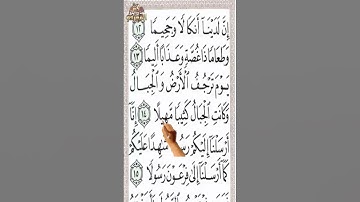 إِنَّ لَدَيْنَآ أَنكَالًا وَجَحِيمًا ١٢
وَطَعَامًا ذَا غُصَّةٍ وَعَذَابًا أَلِيمًا ١٣
يَوْمَ تَرْجُفُ ٱلْأَرْضُ وَٱلْجِبَالُ
وَكَانَتِ ٱلْجِبَالُ كَثِيبًا مَّهِيلًا ١٤ إِنَّآ
أَرْسَلْنَآ إِلَيْكُمْ رَسُولًا شَٰهِدًا عَلَيْكُمْ
كَمَآ أَرْسَلْنَآ إِلَىٰ فِرْعَوْنَ رَسُولًا ١٥